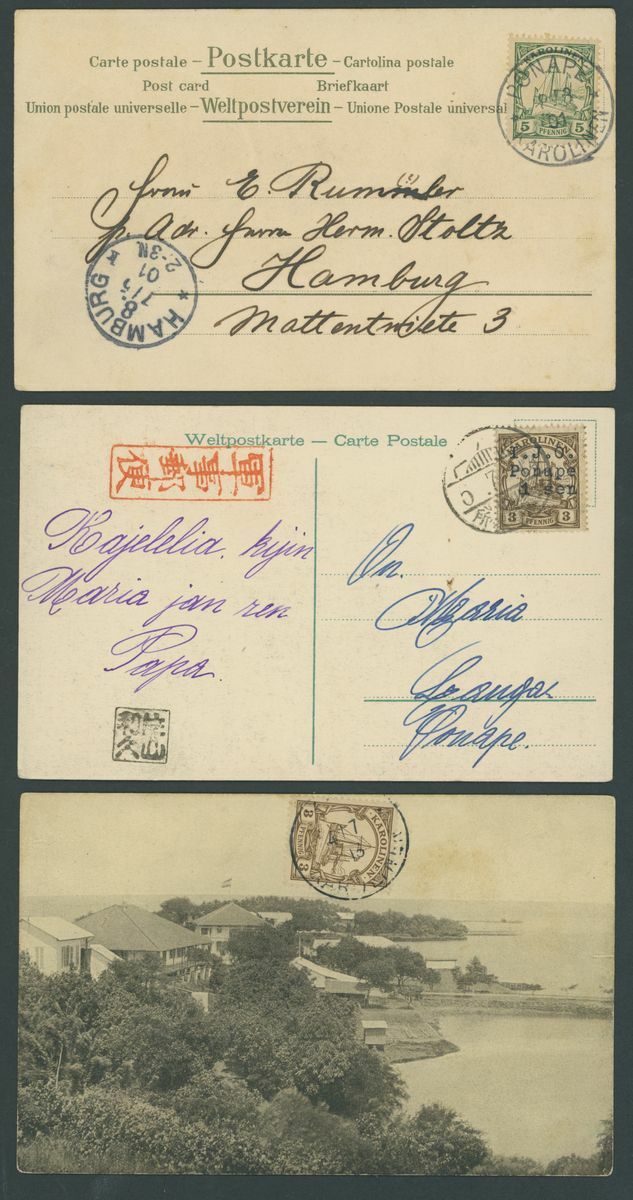 Carte postale – Postkarte – Cartolina postale
Post card Briefkaart
Union postale universelle – Weltpostverein – Unione Postale universal
KAROLINEN
5 5
PFENNIG
PONAPE
01
KAROLINEN
Frau E. Rummler
p. Adr. Herrn Herm. Stoltz
Hamburg
Mattentwiete 3
HAMBURG
8.
7/5
01
2-3N.
Weltpostkarte — Carte Postale
軍事郵便
KAROLINEN
I.J.O.
Ponape
1 sen
3 3
PFENNIG
Kajelelia, kijin
Maria jan ren
Papa.
On.
Maria
Ponape.
KAROLINEN
3 3
PFENNIG